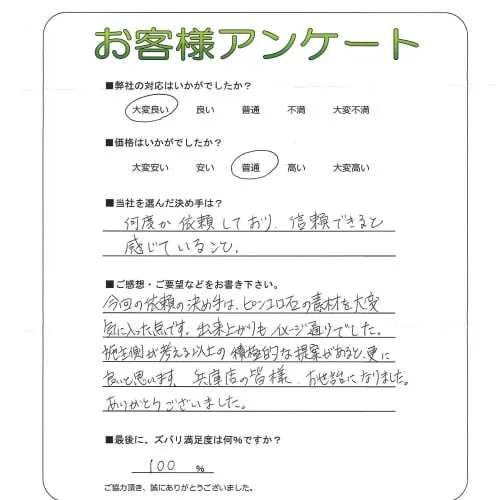 お客様アンケート
■弊社の対応はいかがでしたか?
大変良い 良い 普通 不満 大変不満
■価格はいかがでしたか?
大変安い 安い 普通 高い 大変高い
■当社を選んだ決め手は?
何度か依頼しており、信頼できると
感じていること。
■ご感想・ご要望などをお書き下さい。
今回の依頼の決め手は、ピンコロ石の素材を大変
気に入った点です。出来上がりもイメージ通りでした。
施主側が考える以上の積極的な提案があると、更に
良いと思います。兵庫店の皆様、お世話になりました。
ありがとうございました。
■最後に、ズバリ満足度は何%ですか?
100 %
ご協力頂き、誠にありがとうございました。